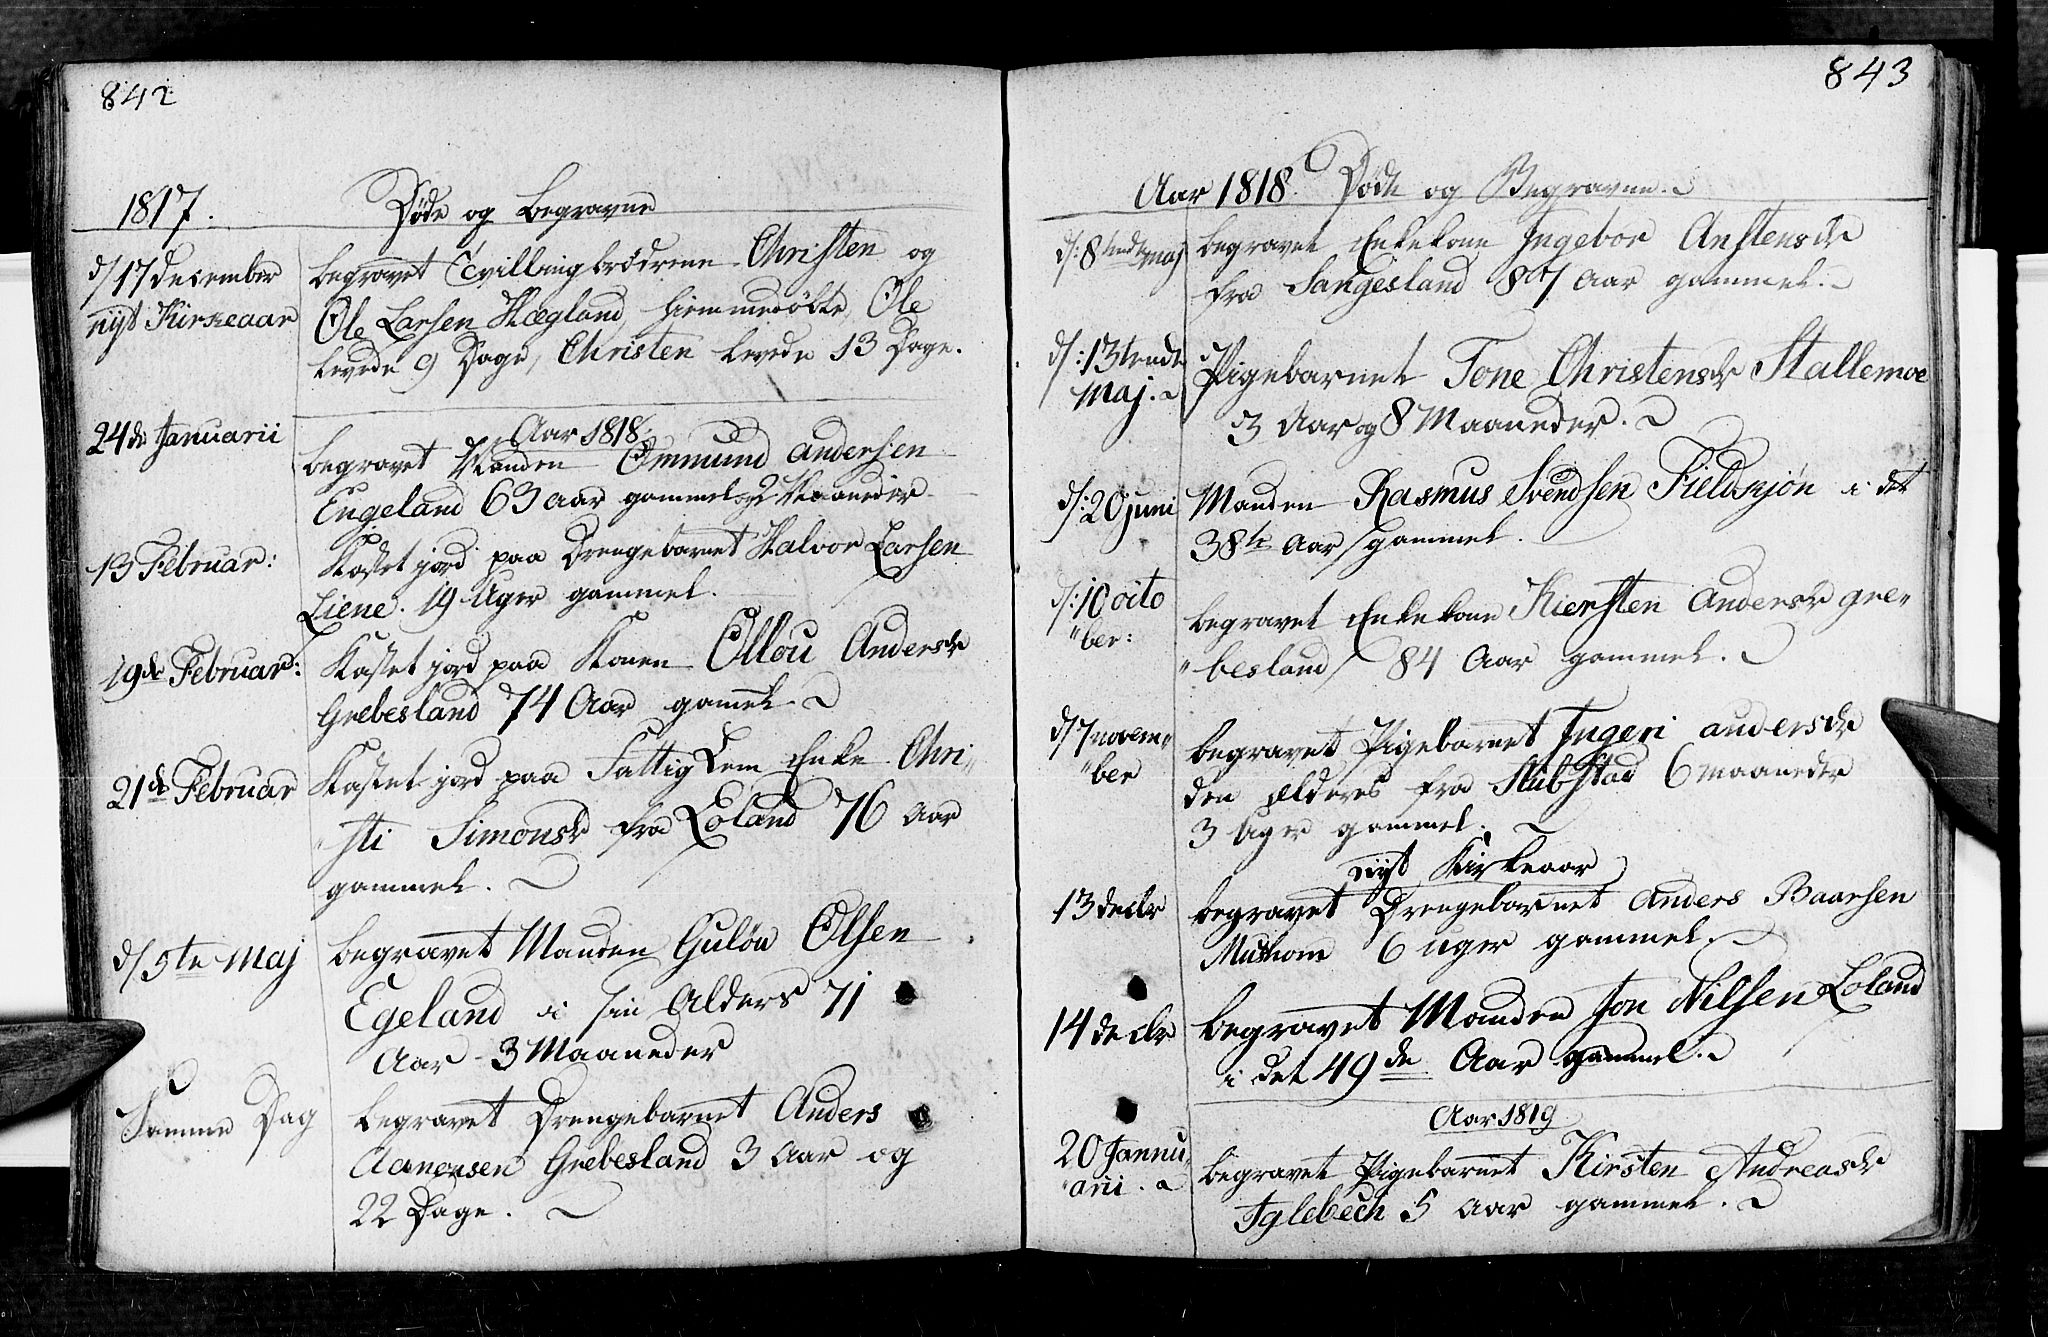 842
1817. Døde og begravne
d/17 december begravet Tvillingbrødrene Christen og
nÿt Kirkeaar Ole Larsen Hægland, hiemmedøbte, Ole
levede 9 Dage, Christen levede 13 Dage.
Aar 1818.
24de Januarii begravet Manden Ommund Andersen
Engeland 63 aar gammel og 2 Maaneder
13 Februar: Kastet jord paa Drengebarnet Halvor Larsen
Liene. 19 Uger gammel.
19de Februar: Kastet jord paa Konen Ollou Andersdr
Grebesland 74 Aar gamel.
21de Februar Kastet jord paa Fattig Lem Enke Chri-
sti Simonsdr fra Loland 76 Aar
gammel.
d/5te Maj begravet Manden Guløv Olsen
Egeland i sin Alders 71
Aar 3 Maaneder
Samme Dag begravet Drengebarnet Anders
Aanensen Grebesland 3 Aar og
22 Dage.
843
Aar 1818. Døde og Begravne.
d/: 8tende maj begravet Enkekone Ingebor Anstensdr
fra Sangesland 87 Aar gammel.
d/: 13tende Pigebarnet Tone Christensdr Stallemoe
Maj. 3 Aar og 8 Maaneder.
d/: 20 juni Manden Rasmus Svendsen Fieldsjøn i det
38te Aar gammel.
d/: 10 octo begravet Enkekone Kiersten Andersdr Gre-
ber: besland 84 Aar gammel.
d/7 novem- begravet Pigebarnet Ingeri andersdr
ber den ælderes fra Stubstad 6 maaneder
3 Uger gammel.
nÿt Kirkeaar
13 decbr begravet Drengebarnet Anders Baarsen
6 uger gammel.
14 decbr begravet Manden Jon Nilsen Loland
i det 49de Aar gammel.
Aar 1819
20 Jannu- begravet Pigebarnet Kirsten Andreasdr
arii. Iglebech 5 Aar gammel.